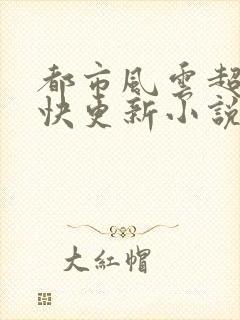 都市風雲超
快更新小說
大紅帽